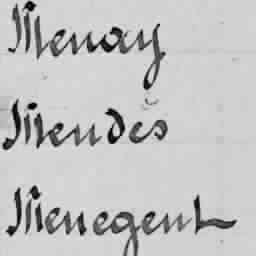 Menay
Mendès
Menegent